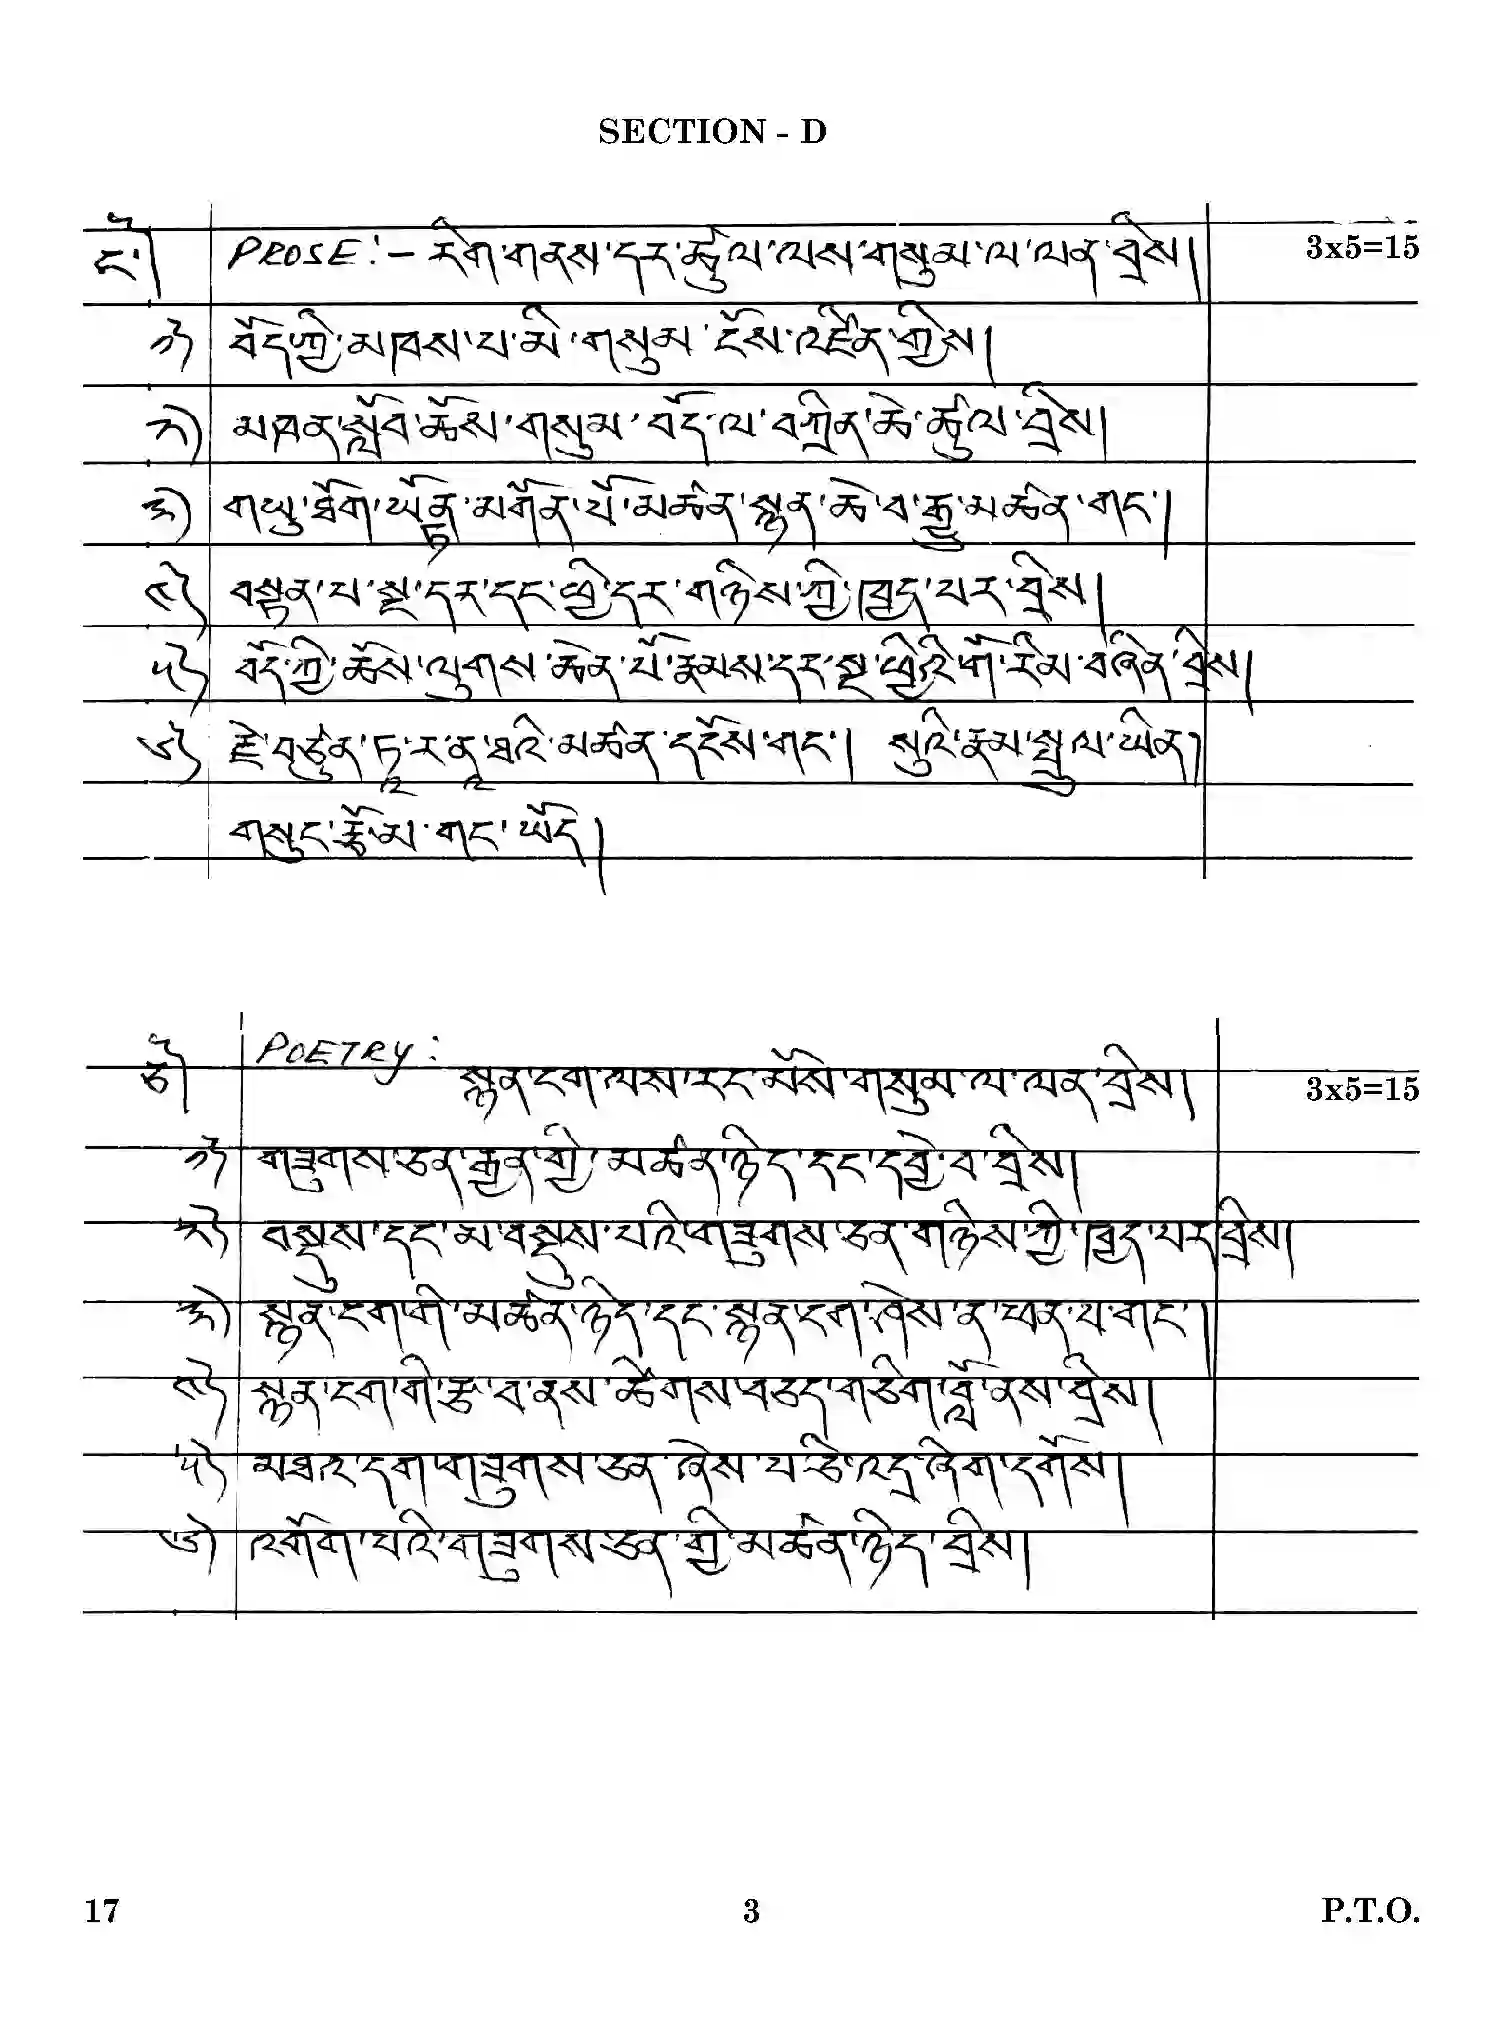 SECTION - D
ང་། PROSE:- རིག་གནས་དར་ཚུལ་ལས་གསུམ་ལ་ལན་བྲིས། 3x5=15
༡) བོད་ཀྱི་མཁས་པ་མི་གསུམ་ངོས་འཛིན་གྱིས།
༢) མཁན་སློབ་ཆོས་གསུམ་བོད་ལ་བཀྲིན་ཆེ་ཚུལ་བྲིས།
༣) གཡུ་ཐོག་ཡོན་ཏན་མགོན་པོ་མཚན་སྙན་ཆེ་བ་རྒྱུ་མཚན་གང་།
༤) བསྟན་པ་སྔ་དར་དང་ཕྱི་དར་གཉིས་ཀྱི་ཁྱད་པར་བྲིས།
༥) བོད་ཀྱི་ཆོས་ལུགས་ཆེན་པོ་རྣམས་དར་སྔ་ཕྱིའི་གོ་རིམ་བཞིན་བྲིས།
༦) རྗེ་བཙུན་ཏཱ་ར་ནཱ་ཐའི་མཚན་དངོས་གང་། སུའི་རྣམ་སྤྲུལ་ཡིན།
གསུང་རྩོམ་གང་ཡོད།
ཅ། POETRY:
སྙན་ངག་ལས་རང་མོས་གསུམ་ལ་ལན་བྲིས། 3x5=15
༡) གཟུགས་ཅན་རྒྱན་གྱི་མཚན་ཉིད་དང་དབྱེ་བ་བྲིས།
༢) བསྡུས་དང་མ་བསྡུས་པའི་གཟུགས་ཅན་གཉིས་ཀྱི་ཁྱད་པར་བྲིས།
༣) སྙན་ངག་གི་མཚན་ཉིད་དང་སྙན་ངག་ཤེས་ན་ཕན་པ་གང་།
༤) སྙན་ངག་གི་རྩ་བ་ནས་ཚིགས་བཅད་གཅིག་བློ་ནས་བྲིས།
༥) མཐའ་དག་གཟུགས་ཅན་ཞེས་པ་ཅི་འདྲ་ཞིག་དགོས།
༦) འགོག་པའི་གཟུགས་ཅན་གྱི་མཚན་ཉིད་བྲིས།
17 3 P.T.O.